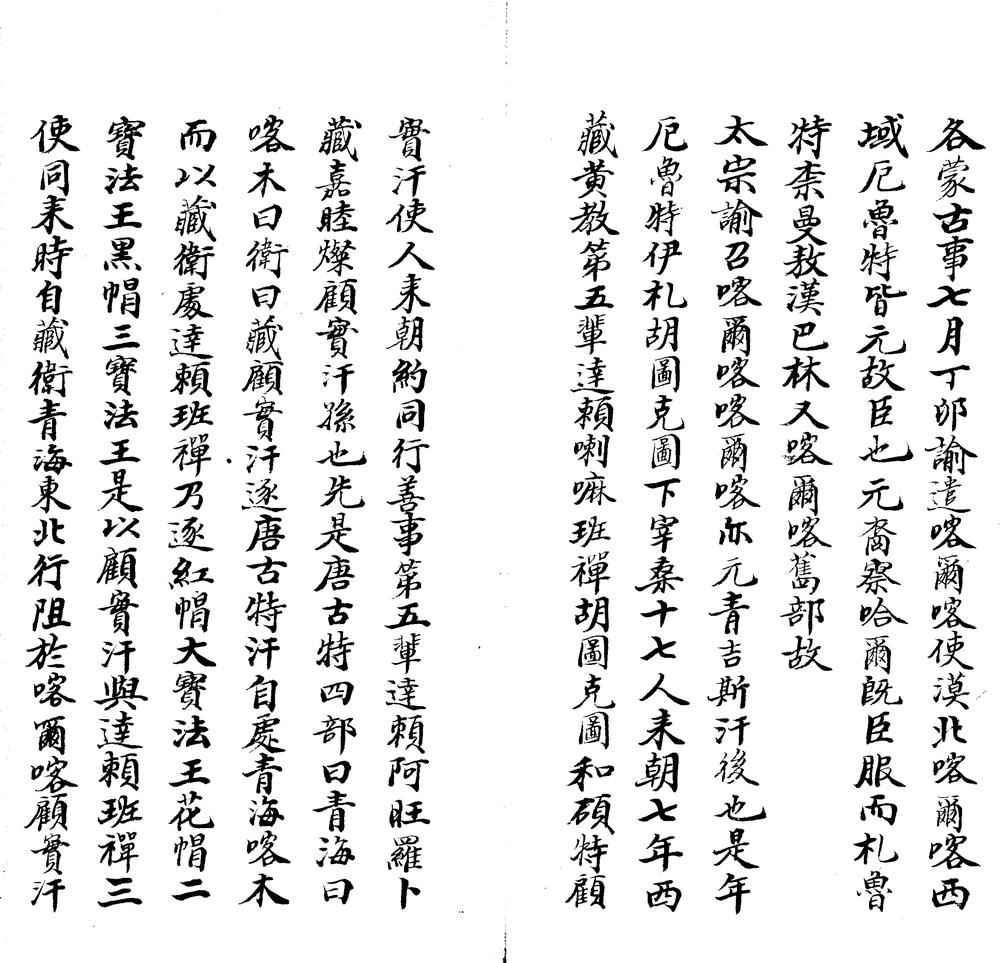 各蒙古事七月丁卯諭遣喀爾喀使漠北喀爾喀西
域厄魯特皆元故臣也元裔察哈爾既臣服而札魯
特柰曼敖漢巴林又喀爾喀舊部故
太宗諭召喀爾喀喀爾喀亦元青吉斯汗後也是年
厄魯特伊札胡圖克圖下宰桑十七人来朝七年西
藏黄教第五輩達頼喇嘛班禪胡圖克圖和碩特顧
實汗使人来朝約同行善事第五輩達頼阿旺羅卜
藏嘉睦燦顧實汗孫也先是唐古特四部曰青海曰
喀木曰衛曰藏顧實汗逐唐古特汗自處青海喀木
而以藏衛處達頼班禪乃逐紅帽大寶法王花帽二
寶法王黑帽三寶法王是以顧實汗與達頼班禪三
使同来時自藏衛青海東北行阻於喀爾喀顧實汗